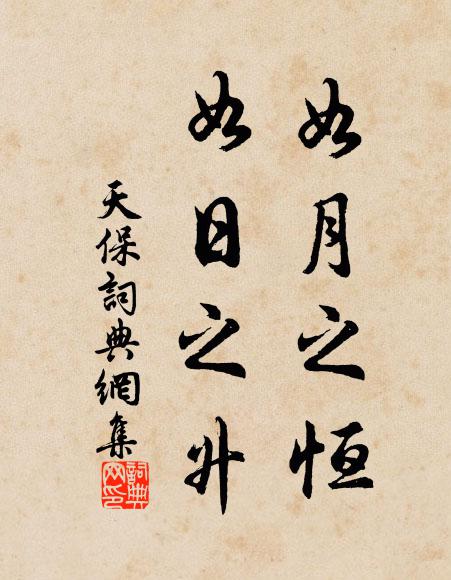 如月之恒
如日之升
天保詞典網集
詞典
网印